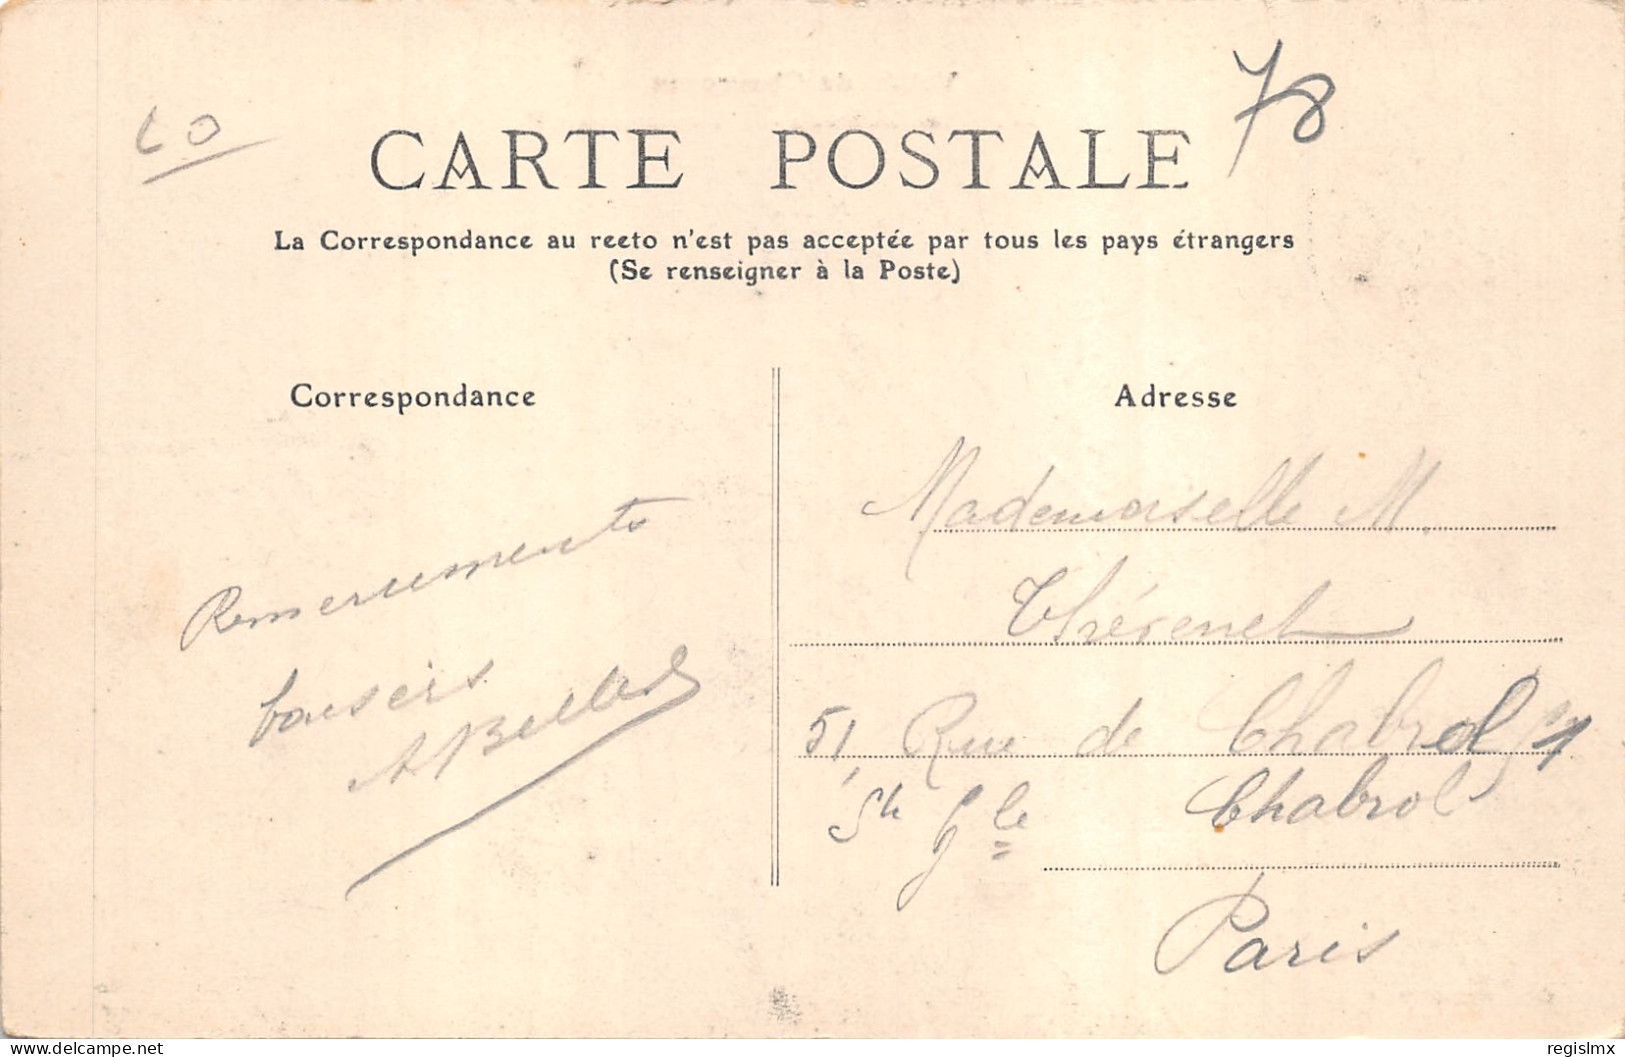 78
CARTE POSTALE
La Correspondance au recto n'est pas acceptée par tous les pays étrangers
(Se renseigner à la Poste)
Correspondance
Adresse
Mademoiselle M.
Thévenet
51, Rue de Chabrol 51
Chabrol
Paris
Remerciements
baisers
www.delcampe.net
regislmx